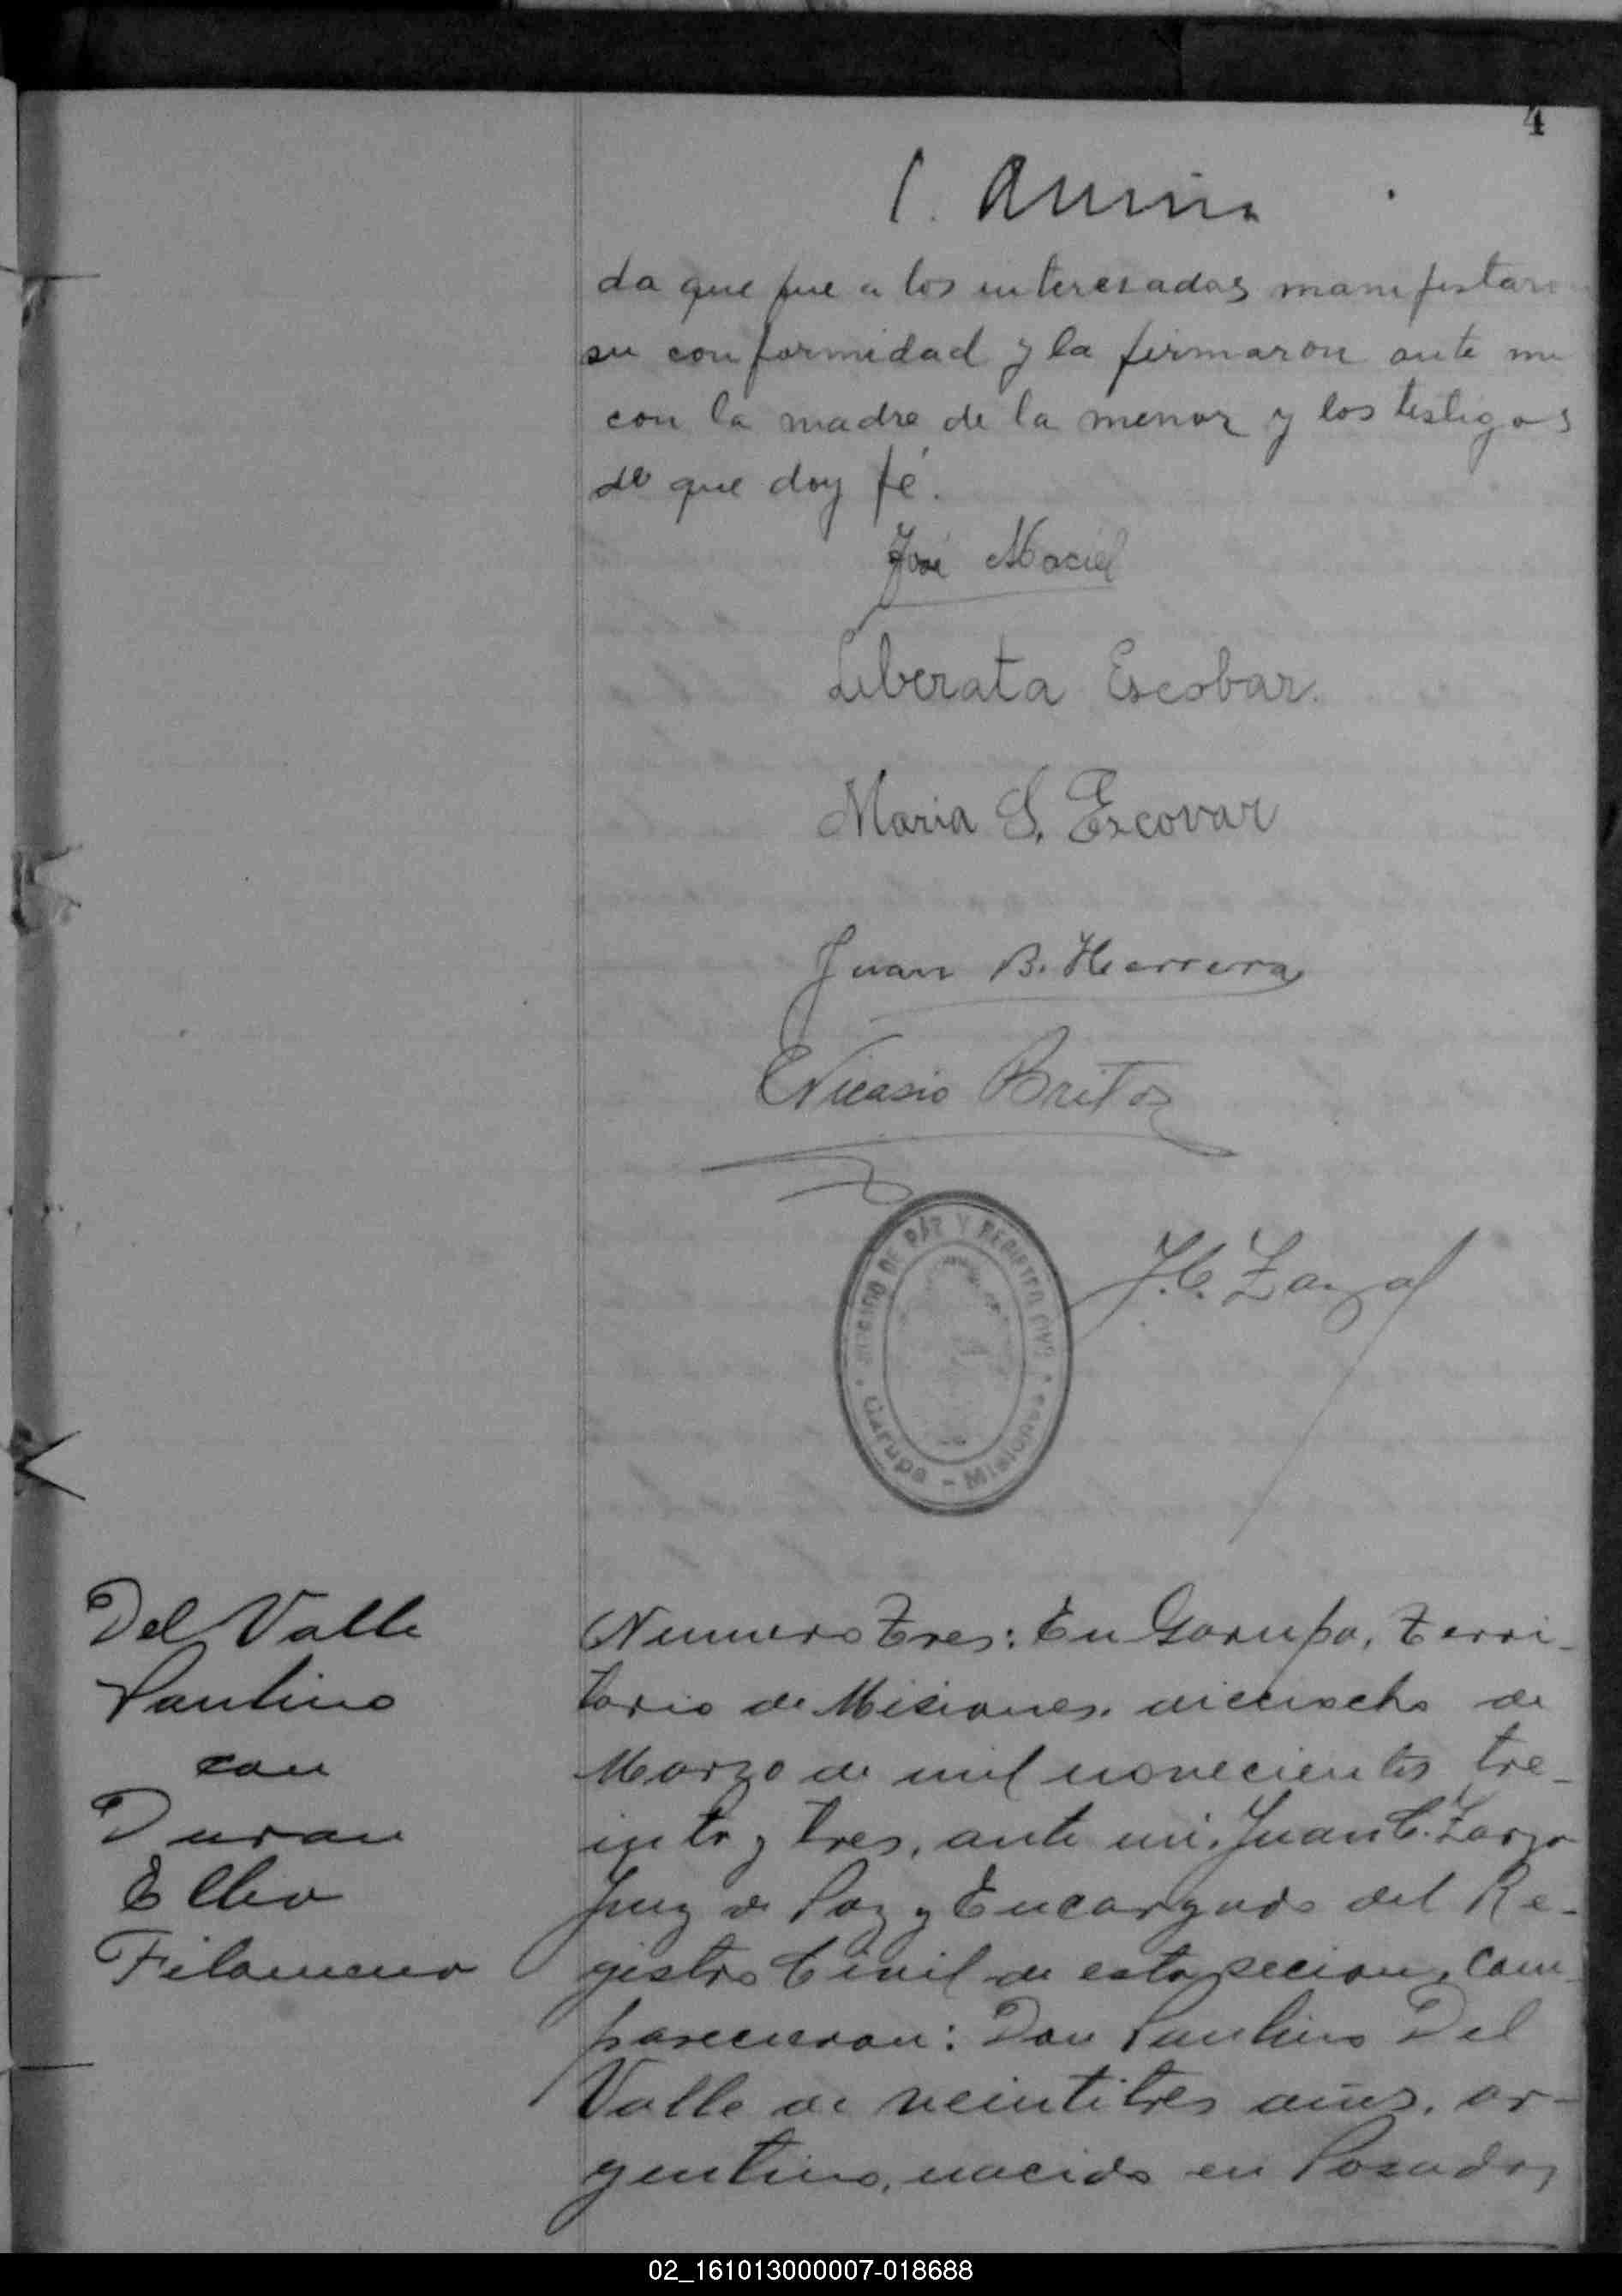 4
da que fue a los interesadas manifestaron
su conformidad y la firmaron ante mi
con la madre de la menor y los testigos
de que doy fé.
José Maciel
Liberata Escobar.
Maria S. Escovar
Juan B. Herrera
Nicasio Brito
JUZGADO DE PAZ Y REGISTRO CIVIL
Garupa - Misiones
J. C. Zarza
Del Valle
Paulino
con
Duran
Elba
Filomena
Numero Tres: En Garupa, Terri-
torio de Misiones, dieciocho de
Marzo de mil novecientos tre-
inta y tres, ante mi, Juan C. Zarza
Juez de Paz y Encargado del Re-
gistro Civil de esta seccion, com-
parecieron: Don Paulino Del
Valle de veintitres años, ar-
gentino, nacido en Posadas,
02_161013000007-018688